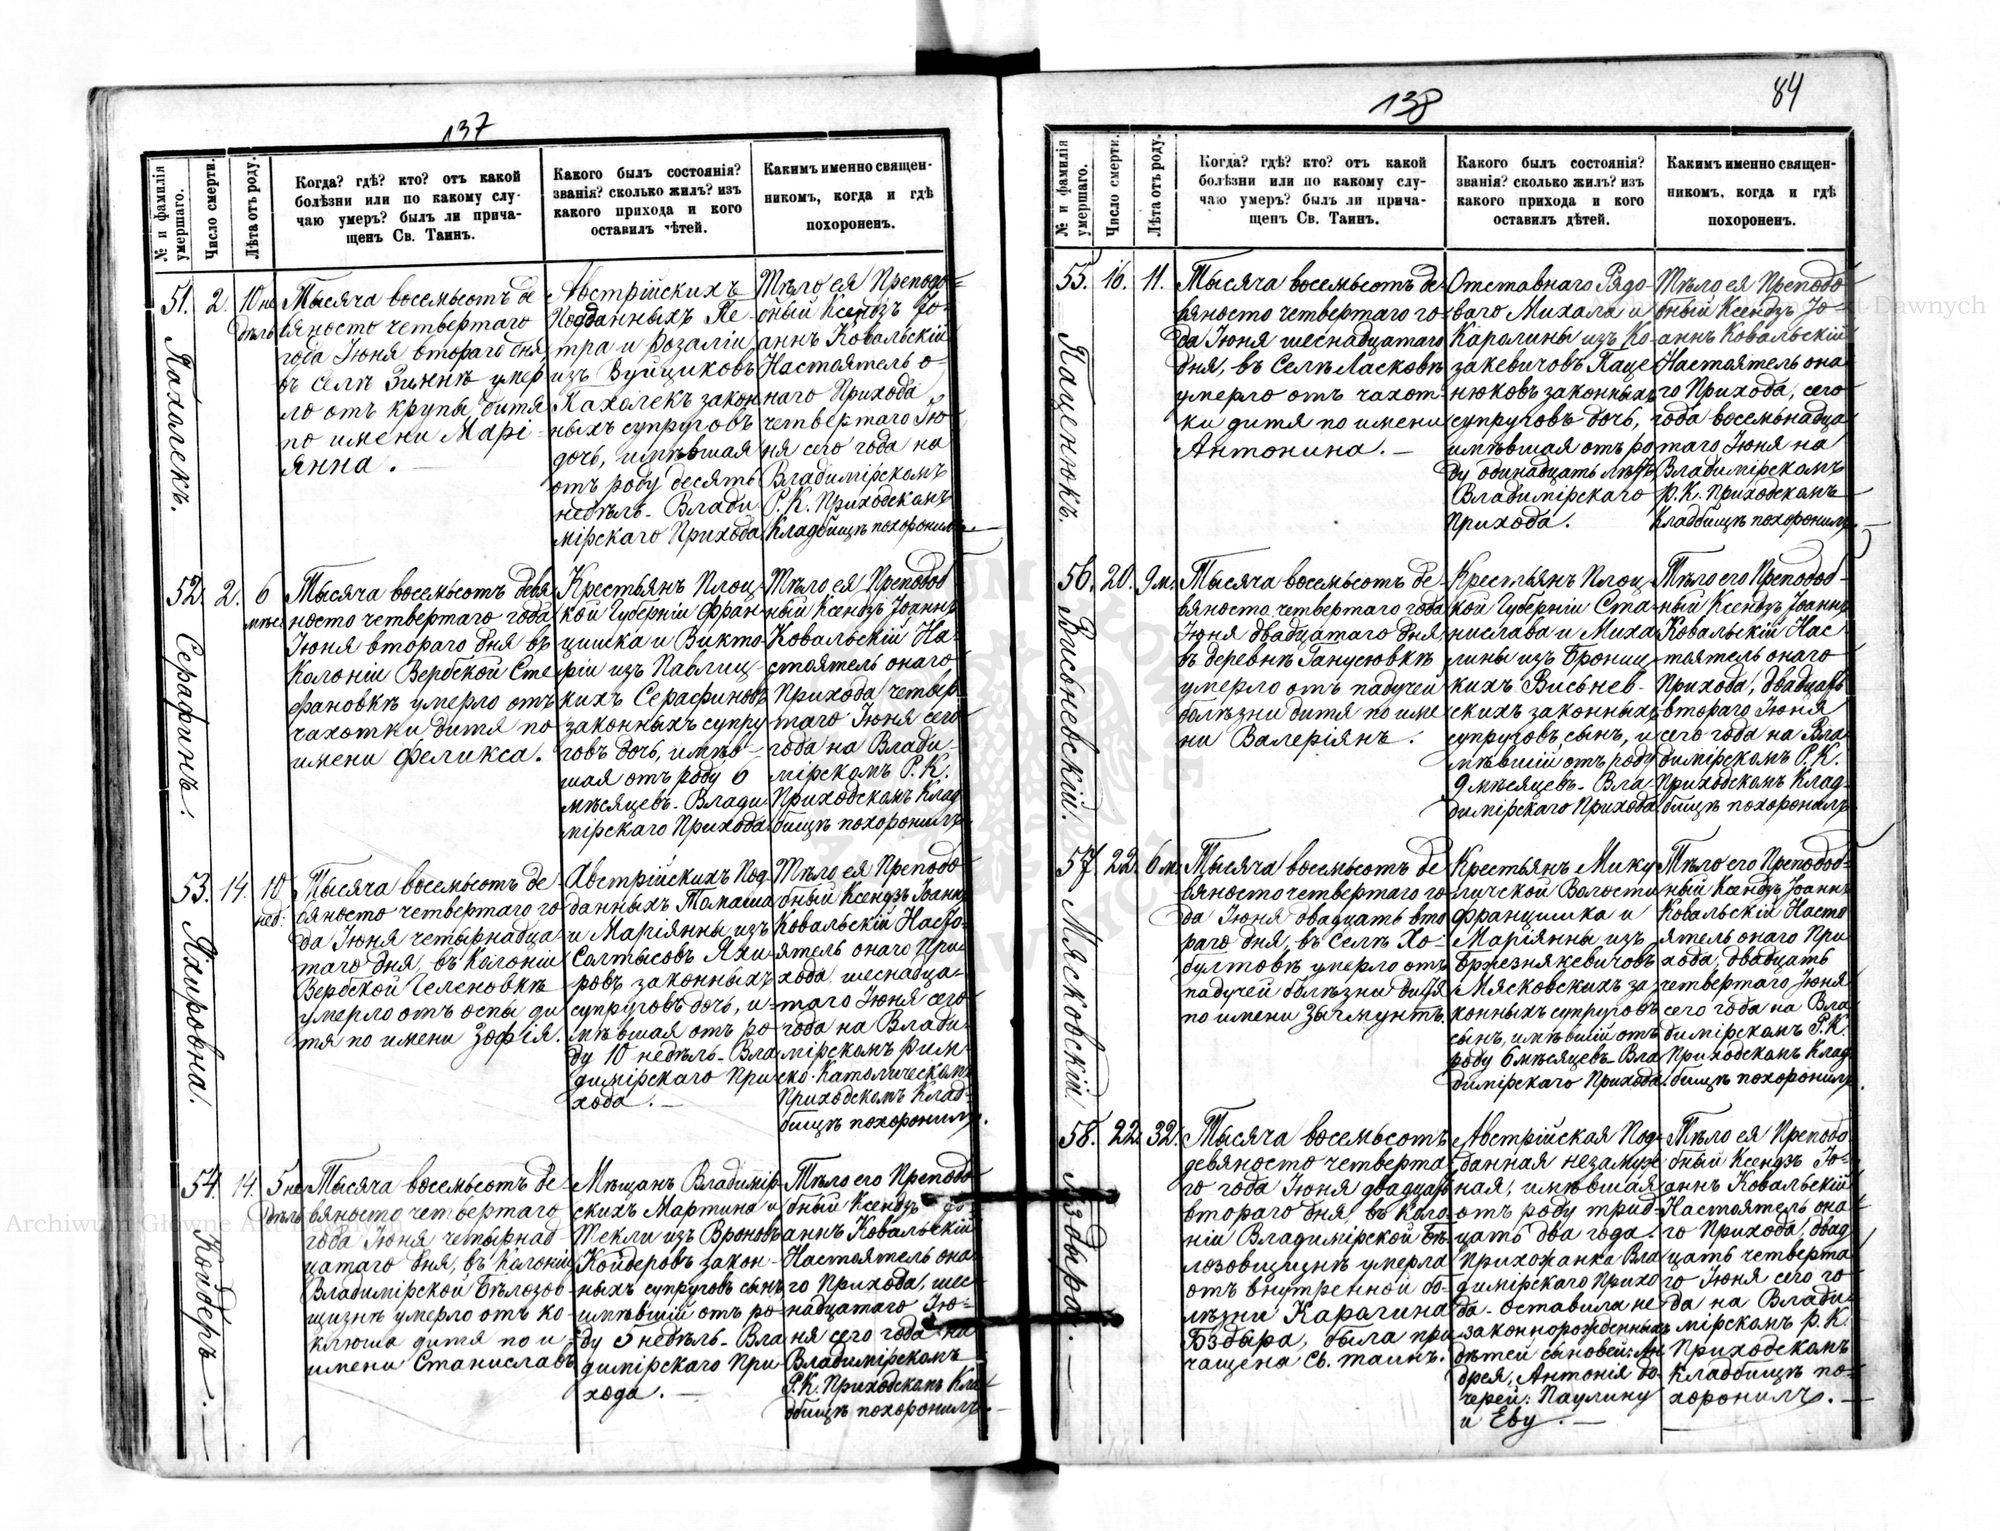 137
№ и фамилія умершаго.
Число смерти.
Лѣта отъ роду.
Когда? гдѣ? кто? отъ какой
болѣзни или по какому слу-
чаю умеръ? былъ ли прича-
щенъ Св. Таинъ.
Какого былъ состоянія?
званія? сколько жилъ? изъ
какого прихода и кого
оставилъ дѣтей.
Какимъ именно священ-
никомъ, когда и гдѣ
похороненъ.
51. Пахолекъ.
2.
10 не
дѣль
Тысяча восемьсотъ де
вяносто четвертаго
года Іюня втораго дня
въ селѣ Зимнѣ умер
ло отъ крупы дитя
по имени Марі-
янна.
Австрійскихъ
Подданныхъ Пе-
тра и Розаліи
изъ Вуйциковъ
Пахолекъ закон
ныхъ супруговъ
дочь, имѣвшая
отъ роду десять
недѣль - Влади
мірскаго Прихода
Тѣло ея Преподо-
бный Ксендзъ Іо-
аннъ Ковальскій
Настоятель о-
наго Прихода
четвертаго Ію
ня сего года на
Владимірскомъ
Р. К. Приходскомъ
Кладбищѣ похоронилъ. —
52. Серафинъ.
2.
6
мѣс
Тысяча восемьсотъ девя
носто четвертаго года
Іюня втораго дня въ
Колоніи Вербской Сте
фановкѣ умерло отъ
чахотки дитя по
имени Феликса.
Крестьянъ Плоц-
кой Губерніи Фран-
цишка и Викто-
ріи изъ Павлиц-
кихъ Серафиновъ
законныхъ супру
говъ дочь, имѣв-
шая отъ роду 6
мѣсяцевъ - Влади
мірскаго Прихода
Тѣло ея Преподоб
ный Ксендзъ Іоаннъ
Ковальскій На-
стоятель онаго
Прихода четвер
таго Іюня сего
года на Влади-
мірскомъ Р. К.
Приходскомъ Клад
бищѣ похоронилъ
53. Яхировна.
14.
10
нед:
Тысяча восемьсотъ де-
вяносто четвертаго го
да Іюня четырнадца
таго дня, въ Колоніи
Вербской Геленовкѣ
умерло отъ оспы ди
тя по имени Зофія.
Австрійскихъ Под
данныхъ Томаша
и Маріянны изъ
Солтысовъ Яхи-
ровъ законныхъ
супруговъ дочь, и-
мѣвшая отъ ро
ду 10 недѣль - Вла
димірскаго При
хода. —
Тѣло ея Преподо
бный Ксендзъ Іоаннъ
Ковальскій Насто-
ятель онаго При
хода шеснадца-
таго Іюня сего
года на Влади
мірскомъ Рим-
ско-Католическомъ
Приходскомъ Клад-
бищѣ похоронилъ.
54. Койдеръ. —
14.
5 не
дѣль
Тысяча восемьсотъ де-
вяносто четвертаго
года Іюня четырнад-
цатаго дня, въ Колоніи
Владимірской Бѣлозов
щизнѣ умерло отъ ко
клюша дитя по и-
имени Станиславъ
Мѣщанъ Владимір
скихъ Мартина и
Текли изъ Вроновъ
Койдеровъ закон-
ныхъ супруговъ сынъ
имѣвшій отъ ро-
ду 5 недѣль - Вла
димірскаго При
хода. —
Тѣло его Преподо
бный Ксендзъ Іо-
аннъ Ковальскій
Настоятель она-
го Прихода, шес-
надцатаго Ію-
ня сего года на
Владимірскомъ
Р. К. Приходскомъ Кла
дбищѣ похоронилъ. —
138
84
№ и фамилія умершаго.
Число смерти.
Лѣта отъ роду.
Когда? гдѣ? кто? отъ какой
болѣзни или по какому слу-
чаю умеръ? былъ ли прича-
щенъ Св. Таинъ.
Какого былъ состоянія?
званія? сколько жилъ? изъ
какого прихода и кого
оставилъ дѣтей.
Какимъ именно священ-
никомъ, когда и гдѣ
похороненъ.
55. Паценюкъ.
16.
11.
Тысяча восемьсотъ де
вяносто четвертаго го-
да Іюня шеснадцатаго
дня, въ Селѣ Ласковѣ
умерло отъ чахот-
ки дитя по имени
Антонина. —
Отставнаго Рядо
ваго Михала и
Каролины изъ Ко-
закевичовъ Паце
нюковъ законныхъ
супруговъ дочь,
имѣвшая отъ ро
ду одинадцать лѣтъ
Владимірскаго
Прихода.
Тѣло ея Преподо
бный Ксендзъ Іо-
аннъ Ковальскій
Настоятель она
го Прихода, сего
года восемнадца
таго Іюня на
Владимірскомъ
Р. К. Приходскомъ
Кладбищѣ похоронилъ. —
56. Висьневскій.
20.
9 м.
Тысяча восемьсотъ де-
вяносто четвертаго года
Іюня двадцатаго дня
въ деревнѣ Ганусювкѣ
умерло отъ падучей
болѣзни дитя по име
ни Валеріянъ.
Крестьянъ Плоц-
кой Губерніи Ста-
нислава и Миха
лины изъ Брониц
кихъ Висьнев-
скихъ законныхъ
супруговъ сынъ, и
мѣвшій отъ роду
9 мѣсяцевъ - Вла-
димірскаго Прихода
Тѣло его Преподоб-
ный Ксендзъ Іоаннъ
Ковальскій Нас-
тоятель онаго
Прихода, двадцать
втораго Іюня
сего года на Вла
димірскомъ Р. К.
Приходскомъ Клад-
бищѣ похоронилъ
57. Мясковскій.
22.
6 м.
Тысяча восемьсотъ де
вяносто четвертаго го-
да Іюня двадцать вто
раго дня, въ Селѣ Хо-
бултовѣ умерло отъ
падучей болѣзни дитя
по имени Зыгмунтъ.
Крестьянъ Мику
личской Волости
Францишка и
Маріянны изъ
Бржезнякевичовъ
Мясковскихъ за
конныхъ супруговъ
сынъ, имѣвшій отъ
роду 6 мѣсяцевъ - Вла
димірскаго Прихода.
Тѣло его Преподоб-
ный Ксендзъ Іоаннъ
Ковальскій Насто
ятель онаго При
хода, двадцать
четвертаго Іюня
сего года на Вла
димірскомъ Р. К.
Приходскомъ Клад
бищѣ похоронилъ.
58. Бздыра. —
22.
32.
Тысяча восемьсотъ
девяносто четверта
го года Іюня двадцать
втораго дня, въ Коло-
ніи Владимірской Бѣ
лозовщизнѣ умерла
отъ внутренной бо
лѣзни Каролина
Бздыра, была при
чащена Св. таинъ.
Австрійская Под-
данная незамуж
ная, имѣвшая
отъ роду трид-
цать два года.
Прихожанка Вла
димірскаго Прихо
да - оставила не-
законнорожденныхъ
дѣтей сыновей: Ан
дрея, Антонія до-
черей: Паулину
и Еву. —
Тѣло ея Преподо
бный Ксендзъ Іо-
аннъ Ковальскій
Настоятель она-
го Прихода, двад
цать четверта
го Іюня сего го-
да на Влади-
мірскомъ Р. К.
Приходскомъ
Кладбищѣ по-
хоронилъ. —
Archiwum Główne Akt Dawnych